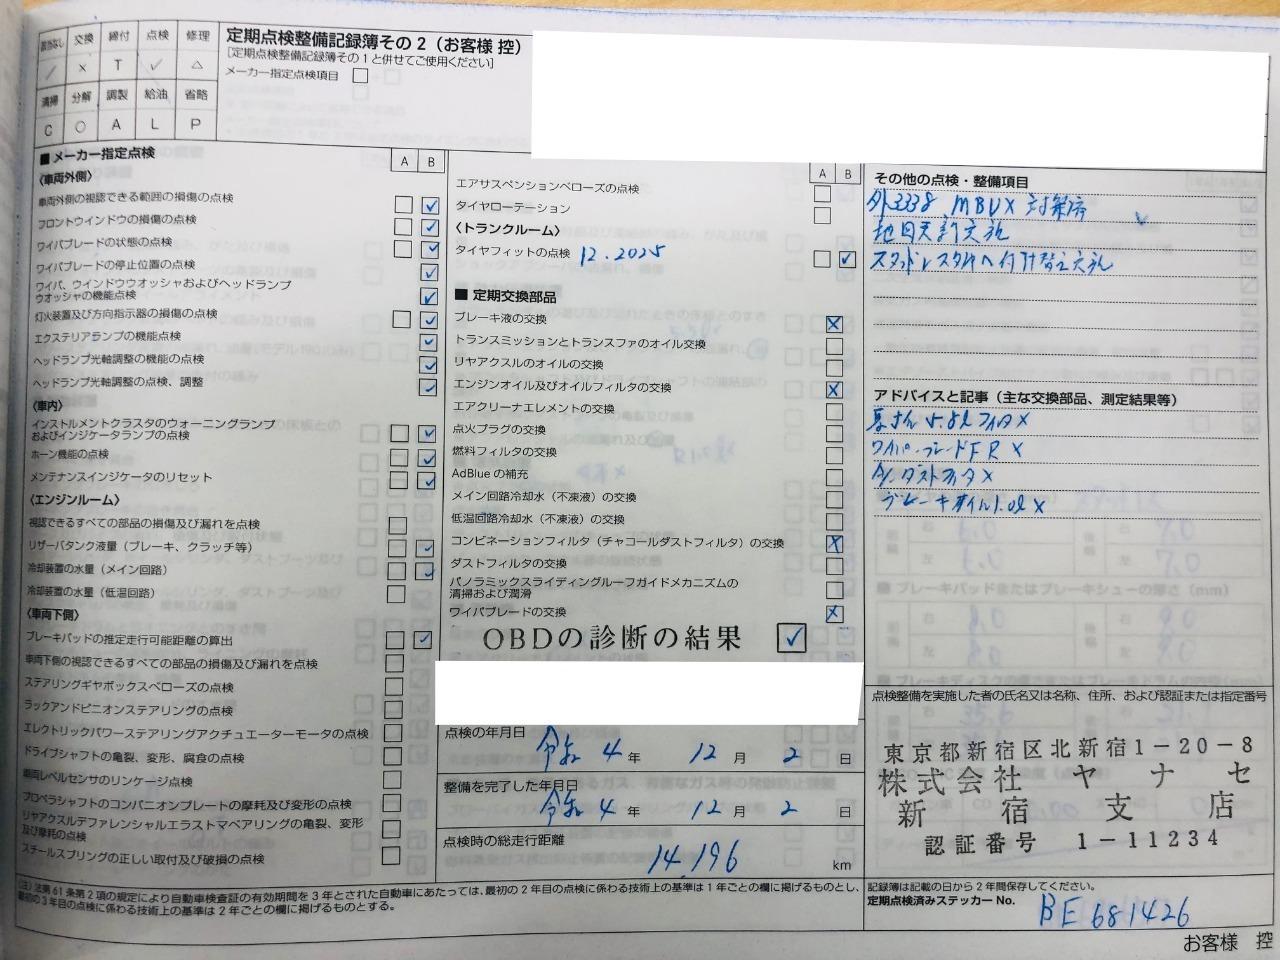 該当なし 交換 締付 点検 修理
／ × T ✓ △
清掃 分解 調整 給油 省略
C ○ A L P
定期点検整備記録簿その2（お客様 控）
［定期点検整備記録簿その1と併せてご使用ください］
メーカー指定点検項目 □
■ メーカー指定点検
A B
〈車両外側〉
車両外側の視認できる範囲の損傷の点検
フロントウインドウの損傷の点検
ワイパブレードの状態の点検
ワイパブレードの停止位置の点検
ワイパ、ウインドウウオッシャおよびヘッドランプ
ウオッシャの機能点検
灯火装置及び方向指示器の損傷の点検
エクステリアランプの機能点検
ヘッドランプ光軸調整の機能の点検
ヘッドランプ光軸調整の点検、調整
〈車内〉
インストルメントクラスタのウォーニングランプ
およびインジケータランプの点検
ホーン機能の点検
メンテナンスインジケータのリセット
〈エンジンルーム〉
視認できるすべての部品の損傷及び漏れを点検
リザーバタンク液量（ブレーキ、クラッチ等）
冷却装置の水量（メイン回路）
冷却装置の水量（低温回路）
〈車両下側〉
ブレーキパッドの推定走行可能距離の算出
車両下側の視認できるすべての部品の損傷及び漏れを点検
ステアリングギヤボックスベローズの点検
ラックアンドピニオンステアリングの点検
エレクトリックパワーステアリングアクチュエーターモータの点検
ドライブシャフトの亀裂、変形、腐食の点検
車両レベルセンサのリンケージ点検
プロペラシャフトのコンパニオンプレートの摩耗及び変形の点検
リヤアクスルデファレンシャルエラストマベアリングの亀裂、変形
及び摩耗の点検
スチールスプリングの正しい取付及び破損の点検
A B
エアサスペンションベローズの点検
タイヤローテーション
〈トランクルーム〉
タイヤフィットの点検 12.2025
■ 定期交換部品
ブレーキ液の交換
トランスミッションとトランスファのオイル交換
リヤアクスルのオイルの交換
エンジンオイル及びオイルフィルタの交換
エアクリーナエレメントの交換
点火プラグの交換
燃料フィルタの交換
AdBlueの補充
メイン回路冷却水（不凍液）の交換
低温回路冷却水（不凍液）の交換
コンビネーションフィルタ（チャコールダストフィルタ）の交換
ダストフィルタの交換
パノラミックスライディングルーフガイドメカニズムの
清掃および潤滑
ワイパブレードの交換
OBDの診断の結果 ✓
点検の年月日
令和 4 年 12 月 2 日
整備を完了した年月日
令和 4 年 12 月 2 日
点検時の総走行距離
14,196 km
その他の点検・整備項目
外3338 MBUX 対策済
スタッドレスタイヤへ付け替え
アドバイスと記事（主な交換部品、測定結果等）
5.8ℓ フィルタ×
ワイパーブレードFR ×
ダストフィルタ×
ブレーキオイル1.0ℓ×
点検整備を実施した者の氏名又は名称、住所、および認証または指定番号
東京都新宿区北新宿1-20-8
株式会社 ヤナセ
新宿支店
認証番号 1-11234
記録簿は記載の日から2年間保存してください。
定期点検済みステッカーNo. BE681426
（注）法第61条第2項の規定により自動車検査証の有効期間を3年とされた自動車にあたっては、最初の2年目の点検に係わる技術上の基準は1年ごとの欄に掲げるものとし、
最初の3年目の点検に係わる技術上の基準は2年ごとの欄に掲げるものとする。
お客様 控